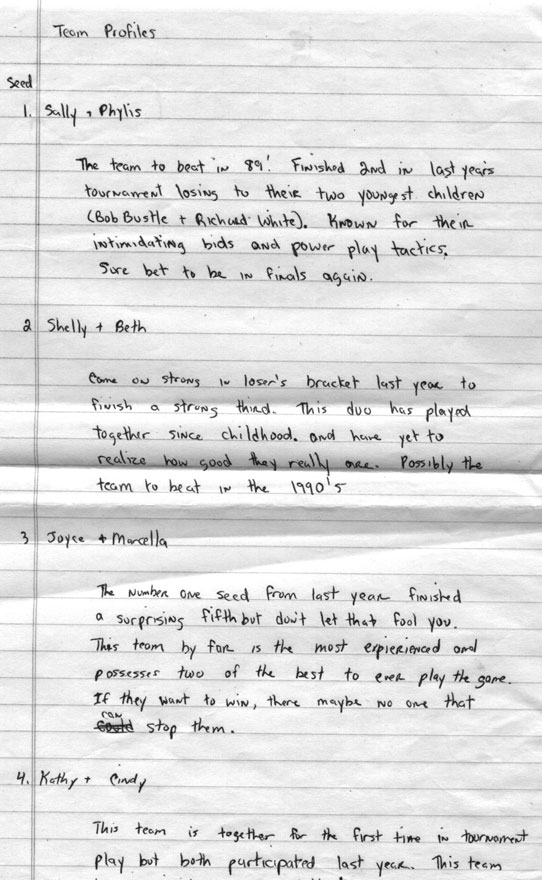 Team Profiles
Seed
1. Sally + Phylis
The team to beat in 89! Finished 2nd in last years
tournament losing to their two youngest children
(Bob Bustle + Richard White). Known for their
intimidating bids and power play tactics.
Sure bet to be in finals again.
2 Shelly + Beth
Came on strong in loser's bracket last year to
finish a strong third. This duo has played
together since childhood. and have yet to
realize how good they really are. Possibly the
team to beat in the 1990's
3 Joyce + Marcella
The number one seed from last year finished
a surprising fifth but don't let that fool you.
This team by far is the most expierienced and
possesses two of the best to ever play the game.
If they want to win, there maybe no one that
can
could stop them.
4. Kathy + Cindy
This team is together for the first time in tournament
play but both participated last year. This team